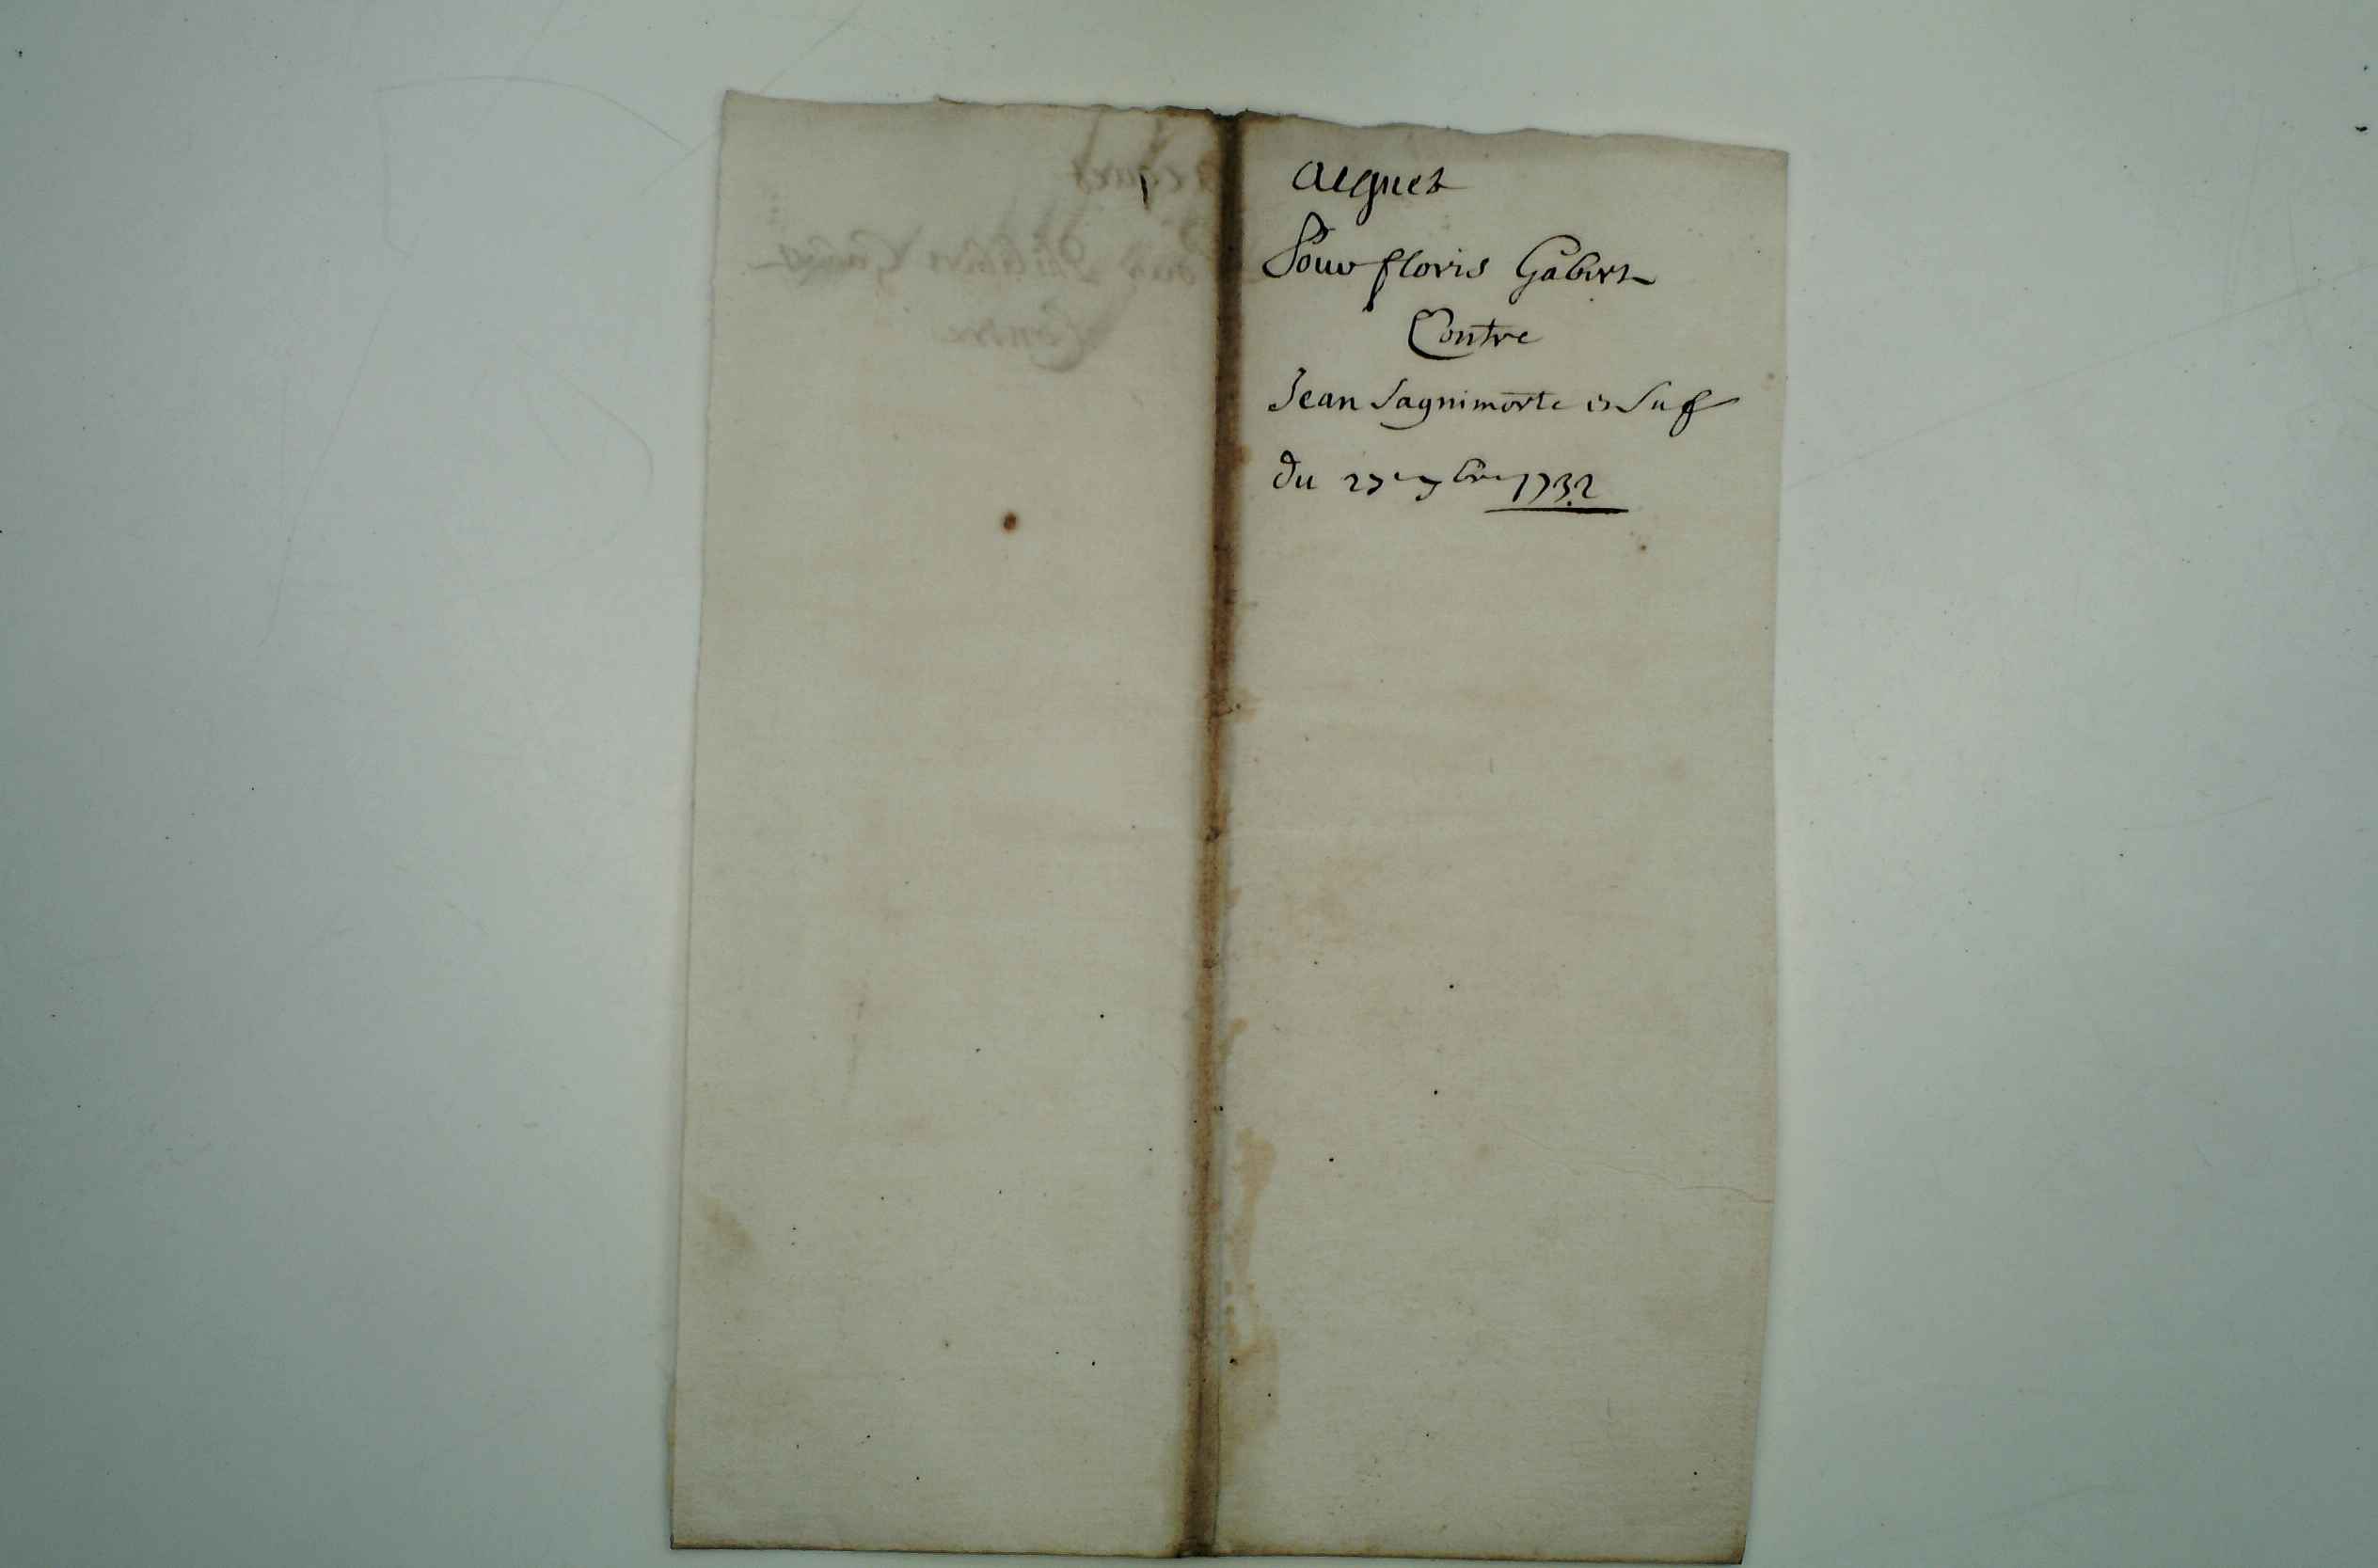 acquet
Pour floris Gabert
Contre
Jean Sagnimorte
du 27e 7bre 1732